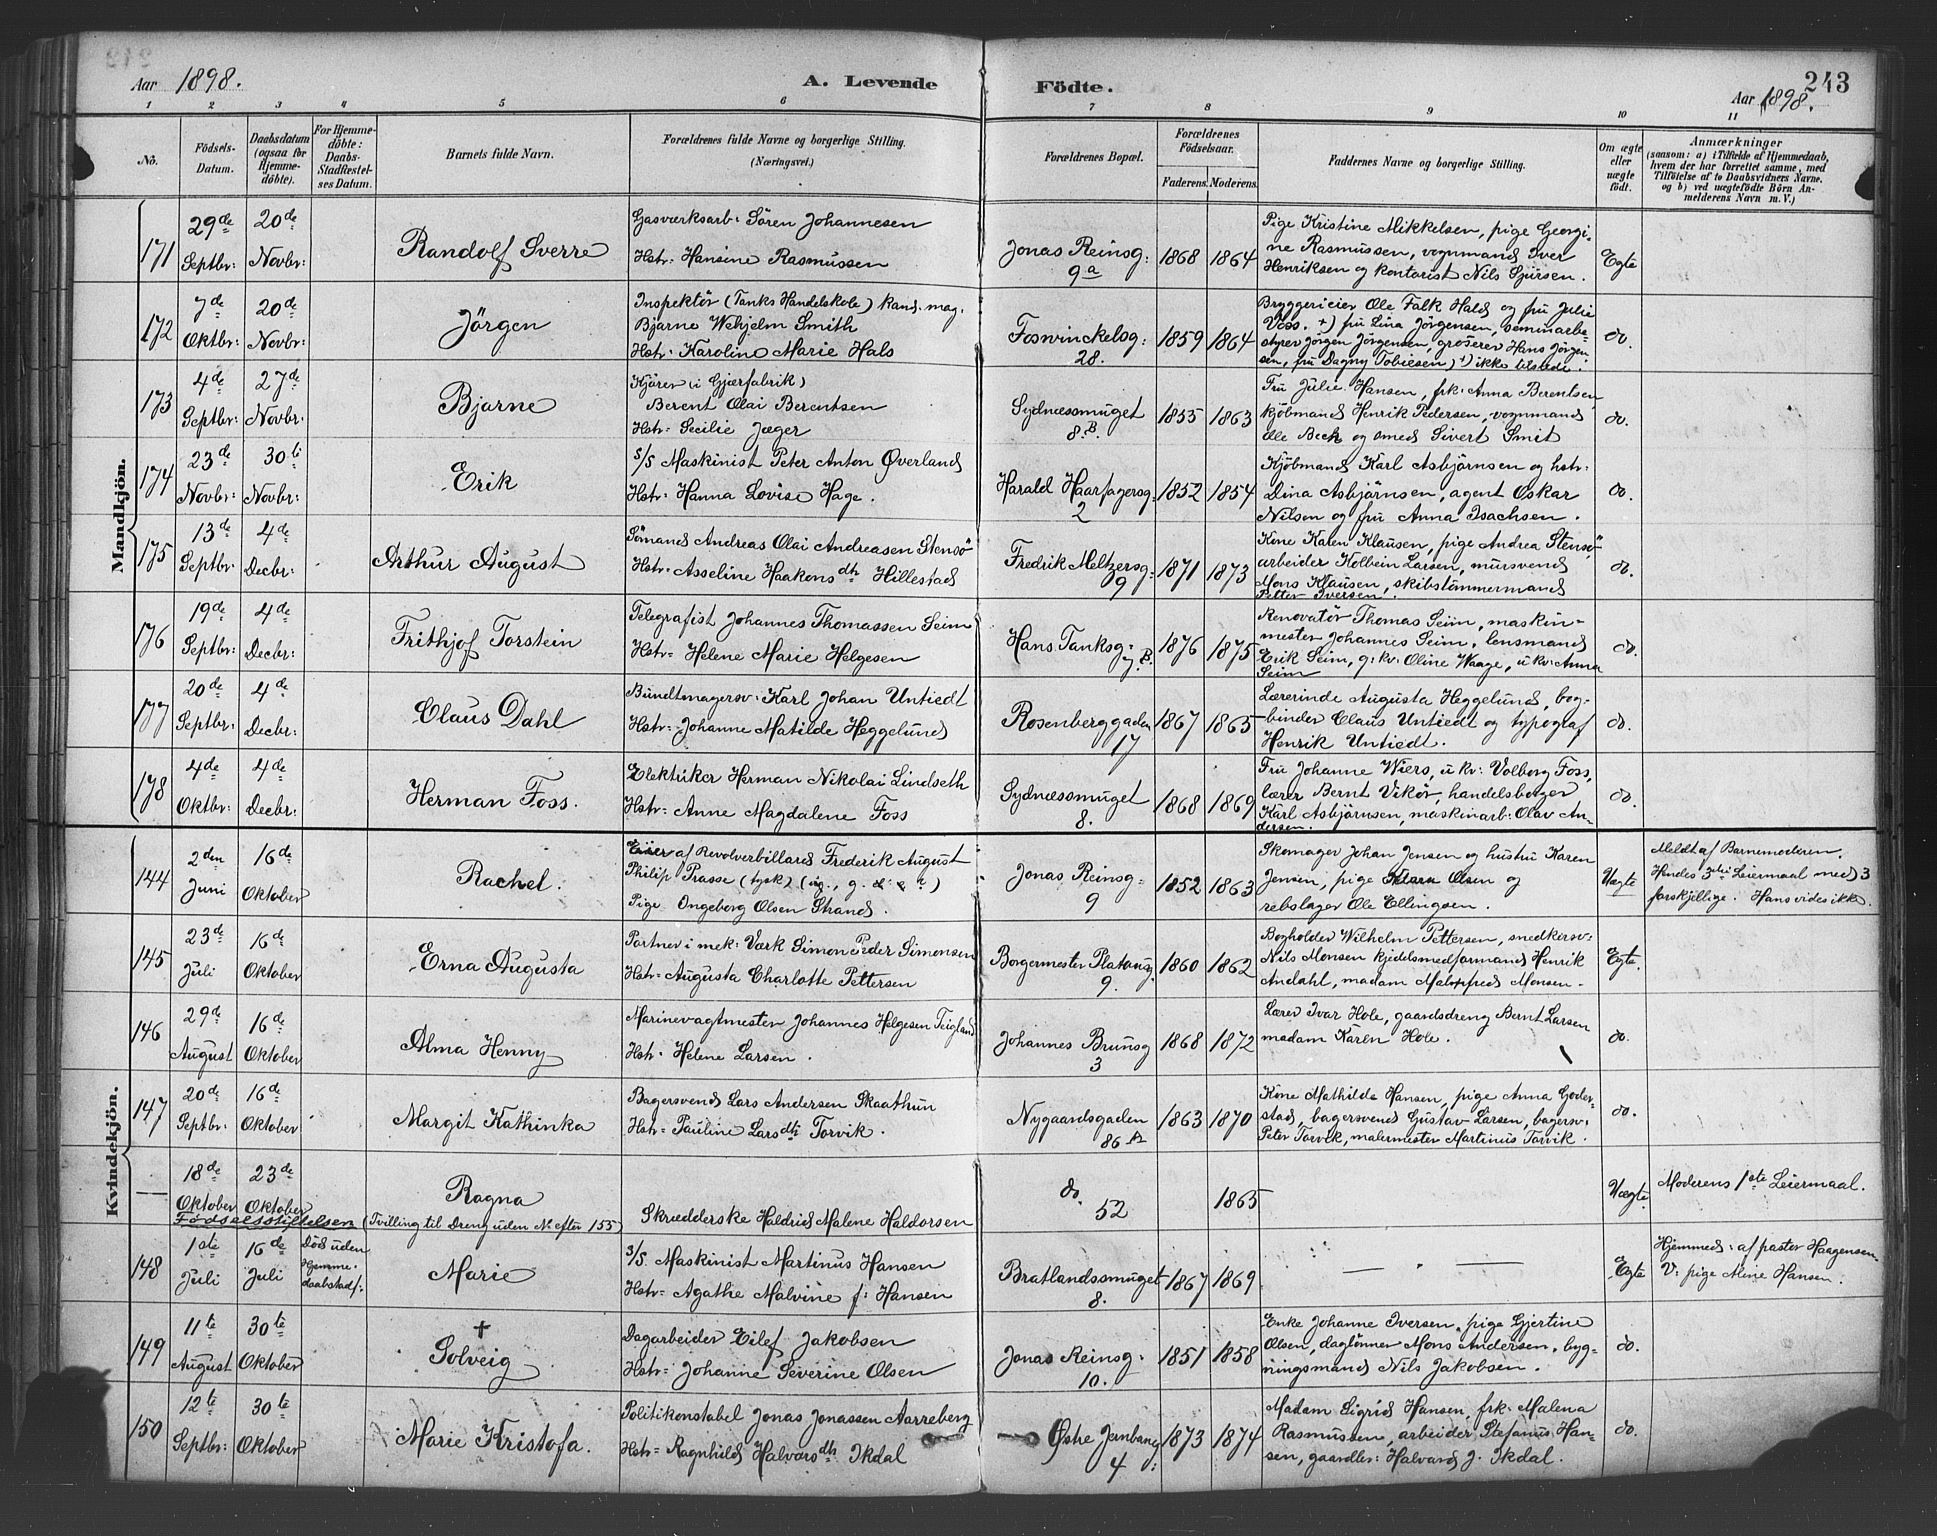 Aar 1898.
A. Levende
Födte.
243
Aar 1898.
1 2 3 4 5 6 7 8 9 10 11
No.
Födsels-
Datum.
Daabsdatum
(ogsaa for
Hjemme-
döbte).
For Hjemme-
döbte:
Daabs-
Stadfæstel-
ses Datum.
Barnets fulde Navn.
Forældrenes fulde Navne og borgerlige Stilling.
(Næringsvei.)
Forældrenes Bopæl.
Forældrenes
Födselsaar.
Faderens. Moderens.
Faddernes Navne og borgerlige Stilling.
Om ægte
eller
uægte
födt.
Anmærkninger
(saasom: a) i Tilfælde af Hjemmedaab,
hvem der har forrettet samme, med
Tilföielse af to Daabsvidners Navne,
og b) ved uægtefödte Börn An-
melderens Navn m. V.)
Mandkjön.
171
29de
Septbr:
20de
Novbr:
Randolf Sverre
Gasværksarb: Sören Johannesen
Hstr: Hansine Rasmussen
Jonas Reinsg:
9a
1868 1864
Pige Kristine Mikkelsen, pige Georgi-
ne Rasmussen, vognmand Iver
Henriksen og kontorist Nils Sjursen.
Egte
172
7de
Oktbr:
20de
Novbr:
Jörgen
Inspektör (Tanks Handelskole) kand. mag.
Bjarne Wehjelm Smith
Hstr: Karoline Marie Hals
Fosvinckelsg:
28.
1859 1864
Bryggerieier Ole Falk Hals og fru Julie
Voss. +) fru Lina Jörgensen, seminarbe-
styrer Jörgen Jörgensen, groserer Hans Jörgen-
sen, fru Dagny Tobiesen) +) ikke tilstede.
do.
173
4de
Septbr:
27de
Novbr:
Bjarne
Kjörer (i Gjærfabrik)
Berent Olai Berentsen
Hstr: Secilie Jæger
Sydnæssmuget
8.B.
1855 1863
Fru Julie Hansen, frk: Anna Berentsen
kjöbmand Henrik Pedersen, vognmand
Ole Beck og smed Sivert Smit
do.
174
23de
Novbr:
30te
Novbr:
Erik
S/S Maskinist Peter Anton Øverland
Hstr: Hanna Lovise Hage.
Harald Haarfagersg:
2
1852 1854
Kjöbmand Karl Asbjörnsen og hstr:
Dina Asbjörnsen, agent Oskar
Nilsen og fru Anna Isachsen.
do.
175
13de
Septbr:
4de
Decbr:
Arthur August
Sömand Andreas Olai Andreasen Stensö
Hstr: Asseline Haakonsdtr Hillestad
Fredrik Meltzersg:
9
1871 1873
Kone Karen Klausen, pige Andrea Stensö,
arbeider Kolbein Larsen, mursvend
Mons Klausen, skibstömmermand
Petter Iversen.
do.
176
19de
Septbr:
4de
Decbr:
Frithjof Torstein
Telegrafist Johannes Thomassen Seim
Hstr: Helene Marie Helgesen
Hans Tanksg:
7.B.
1876 1875
Renovatör Thomas Seim, maskin-
mester Johannes Seim, lensmand
Erik Seim, g: kv: Oline Waage, u kv: Anna
Seim
do.
177
20de
Septbr:
4de
Decbr:
Claus Dahl
Bundtmagersv: Karl Johan Untiedt
Hstr: Johanne Matilde Heggelund
Rosenberggaden
17
1867 1865
Lærerinde Augusta Heggelund, bog-
binder Claus Untiedt og typograf
Henrik Untiedt.
do.
178
4de
Oktbr:
4de
Decbr:
Herman Foss.
Elektriker Herman Nikolai Lindseth
Hstr: Anne Magdalene Foss
Sydnæssmuget
8.
1868 1869
Fru Johanne Wiers, u kv: Volborg Foss,
lærer Bernt Vikör, handelsborger
Karl Asbjörnsen, maskinarb: Olav An-
dersen.
do.
Kvindekjön.
144
2den
Juni
16de
Oktober
Rachel.
Eier af Revolverbillard Frederik August
Philip Prasse (tysk)
Pige Ingeborg Olsen Strand.
Jonas Reinsg:
9
1852 1863
Skomager Johan Jensen og hustru Karen
Jensen, pige Klara Olsen og
rebslager Ole Ellingsen.
Uægte
Meldt af Barnemoderen.
Hendes 3die Leiermaal med 3
forskjellige. Hans vides ikke.
145
23de
Juli
16de
Oktober
Erna Augusta
Partner i mek: Værk Simon Peder Simonsen
Hstr: Augusta Charlotte Pettersen
Borgermester Platousg.
9.
1860 1862
Bogholder Wilhelm Pettersen, smedkersv:
Nils Monsen kjedelsmedformand Henrik
Andahl, madam Malmfred Monsen.
Egte.
146
29de
August
16de
Oktober
Alma Henny
Marinevagtmester Johannes Helgesen Teigland
Hstr: Helene Larsen.
Johannes Brunsg
3
1868 1872
Lærer Ivar Hole, gaardsdreng Bernt Larsen
madam Karen Hole.
do.
147
20de
Septbr:
16de
Oktober
Margit Kathinka
Bagersvend Lars Andersen Skaathun
Hstr: Pauline Larsdtr Torvik.
Nygaardsgaden
86 A
1863 1870
Kone Mathilde Hansen, pige Anna Goder-
stad, bagersvend Gustav Larsen, bagersv:
Peter Torvik, malermester Martinus Torvik.
do.
—
18de
Oktober
Födselsstiftelsen
23de
Oktober
Ragna
(Tvilling til Dreng uden No efter 155)
Skrædderske Haldrid Malene Haldorsen
do.
52
1865
Uægte
Moderens 1ste Leiermaal.
148
1ste
Juli
16de
Juli
Död uden
Hjemme-
daabstadf:
Marie
S/S Maskinist Martinus Hansen
Hstr: Agathe Malvine f: Hansen
Bratlandssmuget
8.
1867 1869
— " —
Egte
Hjemmed: af pastor Haagensen
V: pige Aline Hansen.
149
11te
August
30te
Oktober
+
Solveig
Dagarbeider Eilef Jakobsen
Hstr: Johanne Severine Olsen
Jonas Reinsg.
10.
1851 1858
Enke Johanne Iversen, pige Gjertine
Olsen, daglönner Mons Andersen, byg-
ningsmand Nils Jakobsen.
do.
150
12te
Septbr:
30te
Oktober
Marie Kristofa.
Politikonstabel Jonas Jonassen Aarreberg
Hstr: Ragnhild Halvorsdtr Ikdal
Østre Jernbaneg:
4
1873 1874
Madam Sigrid Hansen, frk: Malena
Rasmussen, arbeider Stefanus Han-
sen, gaardbr: Halvard J. Ikdal.
do.